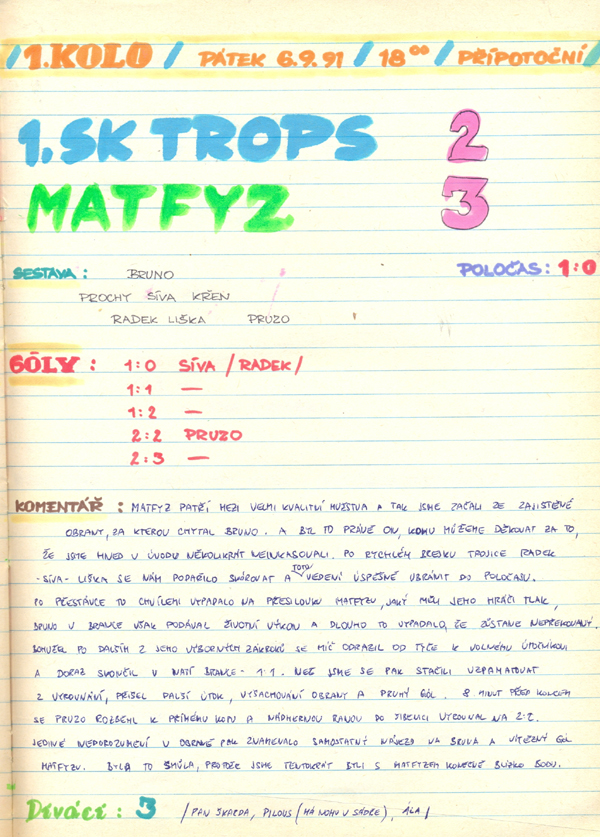 / 1. KOLO / PÁTEK 6.9.91 / 18⁰⁰ / PŘÍPOTOČNÍ /
1. SK TROPS 2
MATFYZ 3
SESTAVA : BRUNO POLOČAS : 1:0
PROCHY SÍVA KŘEN
RADEK LIŠKA PRUZO
GÓLY : 1:0 SÍVA / RADEK /
1:1 —
1:2 —
2:2 PRUZO
2:3 —
KOMENTÁŘ : MATFYZ PATŘÍ MEZI VELMI KVALITNÍ MUŽSTVA A TAK JSME ZAČALI ZE ZAJIŠTĚNÉ
OBRANY, ZA KTEROU CHYTAL BRUNO. A BYL TO PRÁVĚ ON, KOMU MŮŽEME DĚKOVAT ZA TO,
ŽE JSME HNED V ÚVODU NĚKOLIKRÁT NEINKASOVALI. PO RYCHLÉM BREJKU TROJICE RADEK
-SÍVA- LIŠKA SE NÁM PODAŘILO SKÓROVAT A TOTO VEDENÍ ÚSPĚŠNĚ UBRÁNIT DO POLOČASU.
PO PŘESTÁVCE TO CHVÍLEMI VYPADALO NA PŘESILOVKU MATFYZU, JAKÝ MĚLI JEHO HRÁČI TLAK,
BRUNO V BRANCE VŠAK PODÁVAL ŽIVOTNÍ VÝKON A DLOUHO TO VYPADALO, ŽE ZŮSTANE NEPŘEKONANÝ.
BOHUŽEL PO DALŠÍM Z JEHO VÝBORNÝCH ZÁKROKŮ SE MÍČ ODRAZIL OD TYČE K VOLNÉMU ÚTOČNÍKOVI
A DORAZ SKONČIL V NAŠÍ BRANCE - 1:1. NEŽ JSME SE PAK STAČILI VZPAMATOVAT
Z VYROVNÁNÍ, PŘIŠEL DALŠÍ ÚTOK, VYŠACHOVÁNÍ OBRANY A DRUHÝ GÓL. 8 MINUT PŘED KONCEM
SE PRUZO ROZBĚHL K PŘÍMÉMU KOPU A NÁDHERNOU RANOU DO ŠIBENICE VYROVNAL NA 2:2.
JEDINÉ NEDOROZUMĚNÍ V OBRANĚ PAK ZNAMENALO SAMOSTATNÝ NÁJEZD NA BRUNA A VÍTĚZNÝ GÓL
MATFYZU. BYLA TO SMŮLA, PROTOŽE JSME TENTOKRÁT BYLI S MATFYZEM KONEČNĚ BLÍZKO BODU.
Diváci : 3 / PAN SKARDA, PILOUS (MÁ NOHU V SÁDŘE), ÁLA /